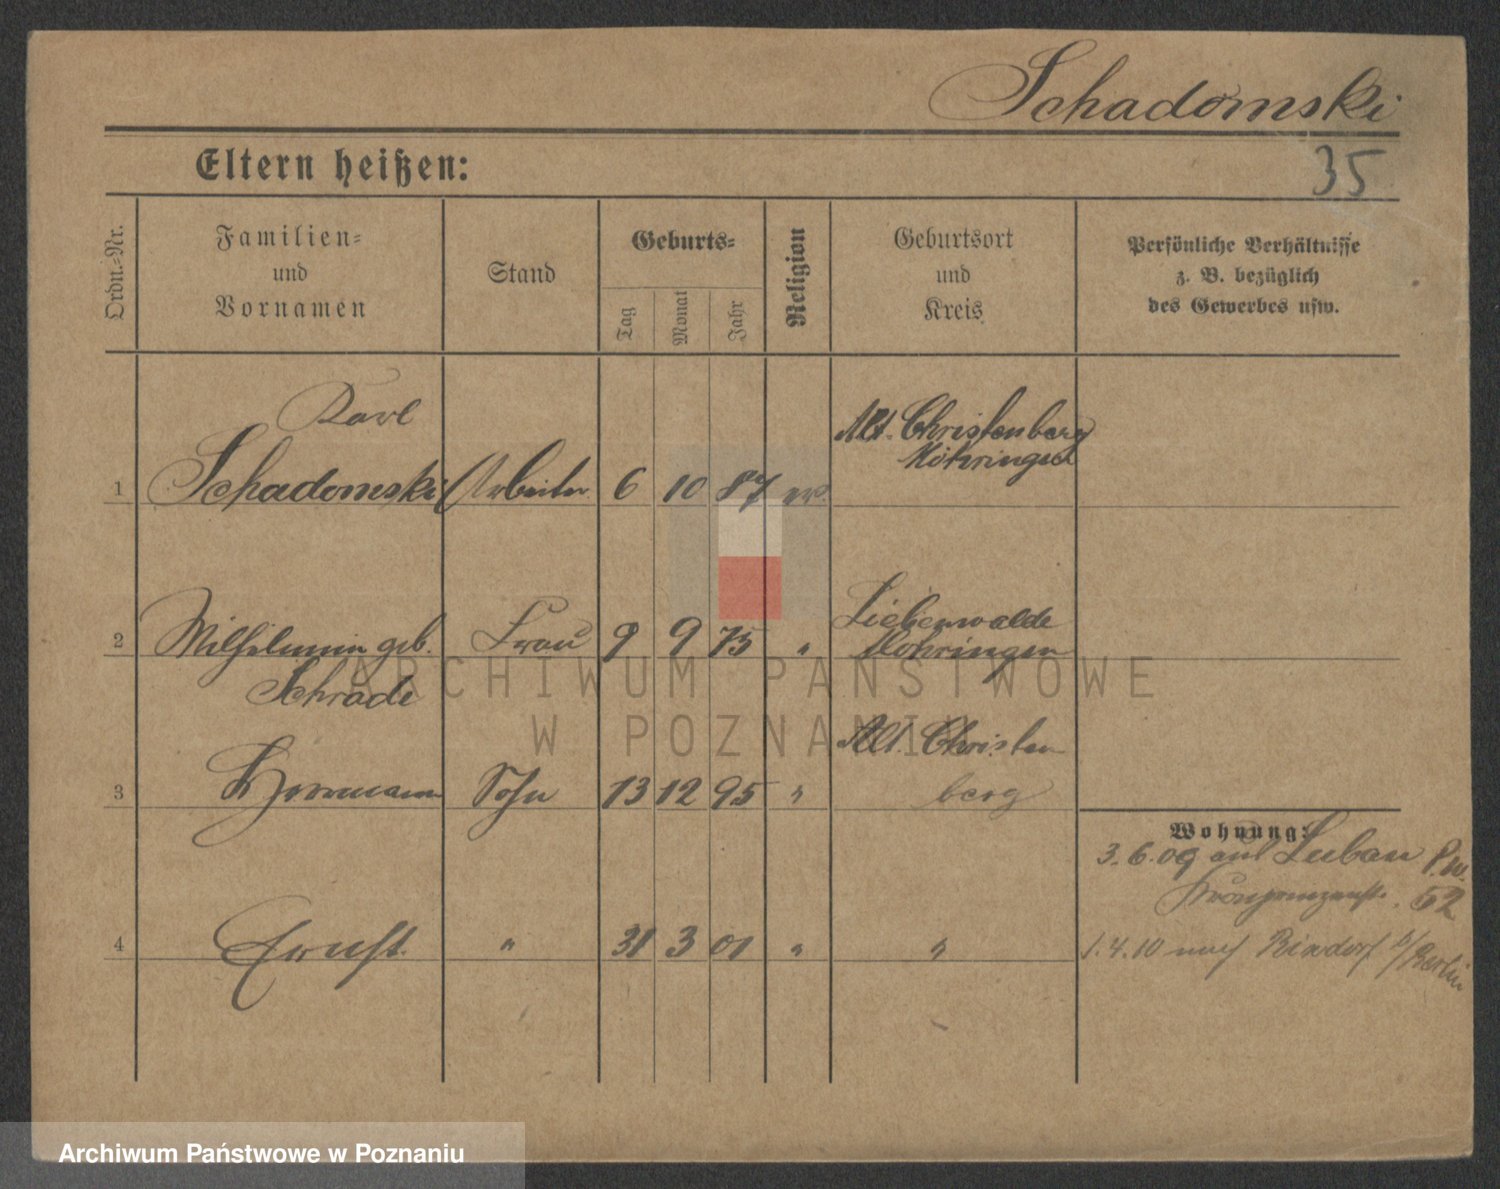 Schadomski
Eltern heißen:
35
Ordn.-Nr.
Familien-
und
Vornamen
Stand
Geburts-
Tag
Monat
Jahr
Religion
Geburtsort
und
Kreis
Persönliche Verhältnisse
z. B. bezüglich
des Gewerbes usw.
Karl
1 Schadomski Arbeiter 6 10 87 ev.
Alt. Christenberg
Mohringen
2 Wilhelmin geb. Frau 9 9 75 "
Schrade
Liebenwalde
Mohringen
3 Herrmann Sohn 13 12 95 "
Alt. Christen
berg
Wohnung:
3.6.09 aus Luban P.W.
Kronprinzenstr. 52
4 Ernst. " 31 3 01 " "
1.4.10 nach Rixdorf b/Berlin
ARCHIWUM PAŃSTWOWE
W POZNANIU
Archiwum Państwowe w Poznaniu